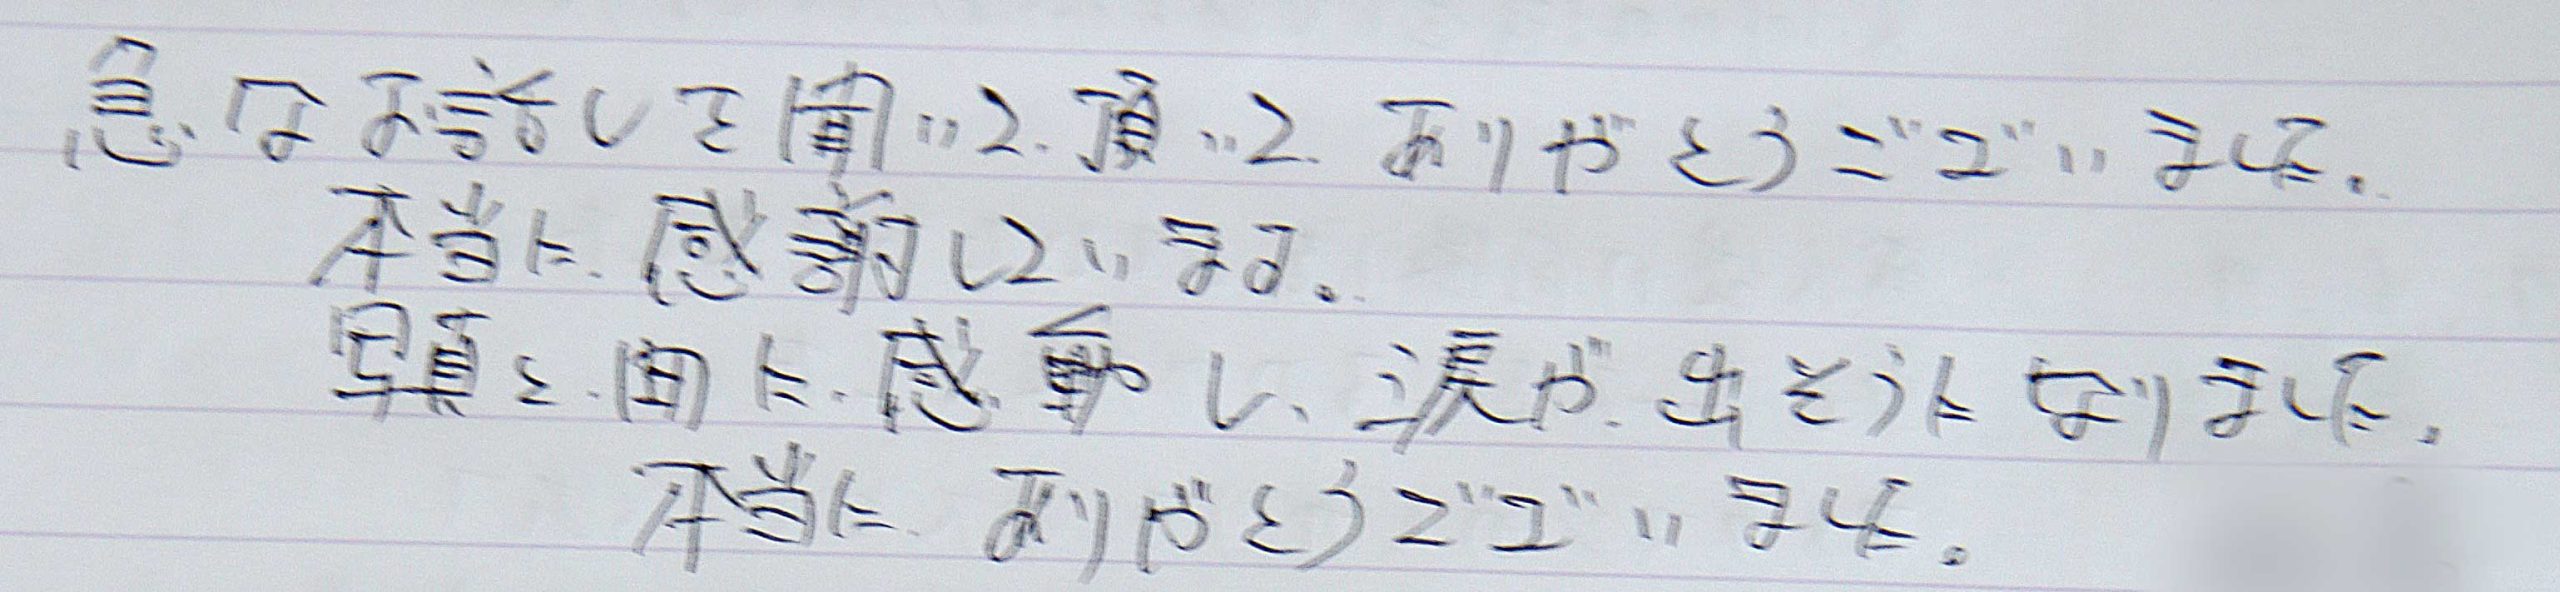 急なお話しを聞いて頂いてありがとうございました。
本当に感謝しています。
写真と曲に感動し、涙が出そうになりました。
本当にありがとうございました。